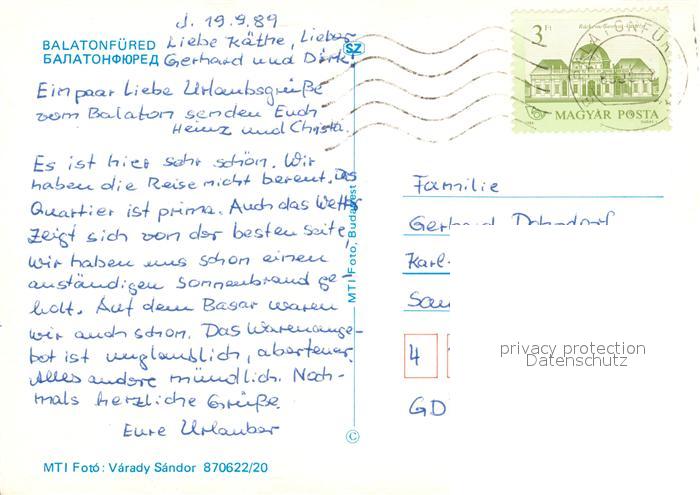 d. 19.9.89
BALATONFÜRED
БАЛАТОНФЮРЕД
Liebe Käthe, Lieber
Gerhard und Dirk,
Ein paar Liebe Urlaubsgrüße
vom Balaton senden Euch
Heinz und Christa.
Es ist hier sehr schön. Wir
haben die Reise nicht bereut. Das
Quartier ist prima. Auch das Wetter
zeigt sich von der besten Seite,
wir haben uns schon einen
anständigen Sonnenbrand ge-
holt. Auf dem Basar waren
wir auch schon. Das Warenange-
bot ist unglaublich, aber teuer.
Alles andere mündlich. Noch-
mals herzliche Grüße.
Eure Urlauber
MTI Fotó: Várady Sándor 870622/20
MTI Fotó, Budapest
©
SZ
3 Ft
MAGYAR POSTA
Familie
Gerhard
Karl-
4
GD
privacy protection
Datenschutz